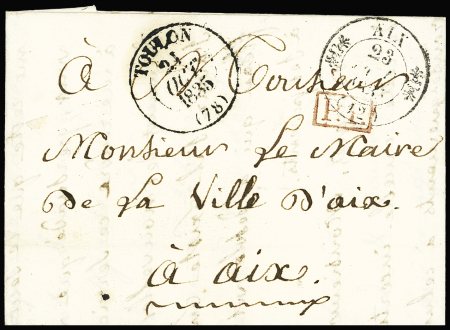 TOULON
21
OCT
1835
(78)
AIX
23
(12)
À Monsieur
Monsieur Le Maire
De La Ville D'aix.
à aix.